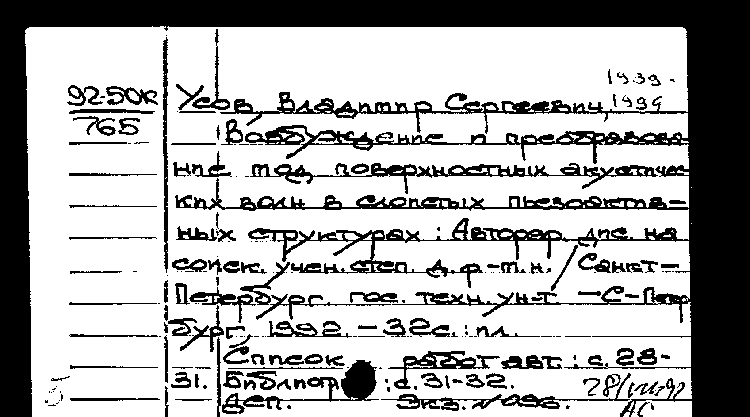 1939-
92-50к Усов, Владимир Сергеевич, 1994
765 Возбуждение и преобразова-
ние мод поверхностных акустичес-
ких волн в слоистых пьезоактив-
ных структурах : Автореф. дис. на
соиск. учен. степ. д.ф.-м.н. / Санкт-
Петербург. гос. техн. ун-т. - С-Петер
бург, 1992. - 32с. : ил.
Список работ авт. : с. 28-
31. Библиогр : с. 31-32.
Деп. Экз. №096.
Б
АС